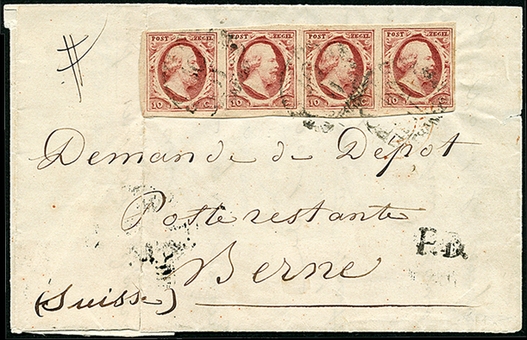 POST ZEGEL POST ZEGEL POST ZEGEL POST ZEGEL
10 C. 10 C. 10 C. 10 C.
Demande de Depot
Poste restante
P.D.
Berne
(Suisse)